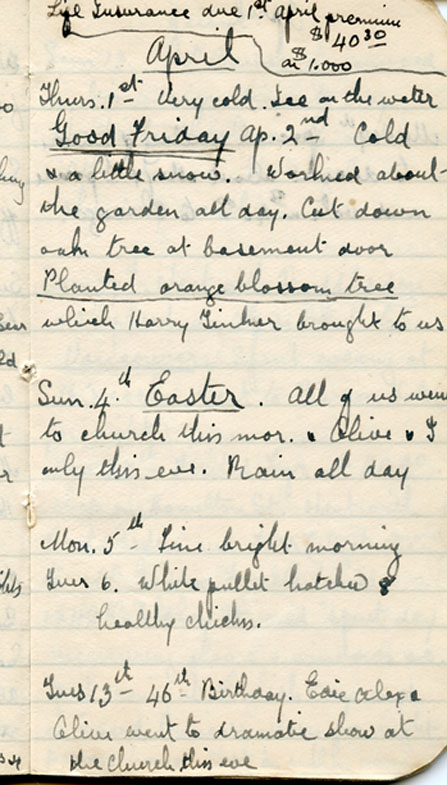 Life Insurance due 1st April premium
$40 30
on $1.000
April
Thurs. 1st – Very cold. Ice on the water
Good Friday Ap. 2nd – Cold
& a little snow. Worked about
the garden all day. Cut down
oak tree at basement door
Planted orange blossom tree
which Harry brought to us
Sun. 4th Easter. All of us wen
to church this mor. & Olive & I
only this eve. Rain all day
Mon. 5th – Fine bright morning
Tues 6. White pullet hatched 8
healthy chicks.
Tues 13th – 46th Birthday. Edie Alex &
Olive went to dramatic show at
the church this eve